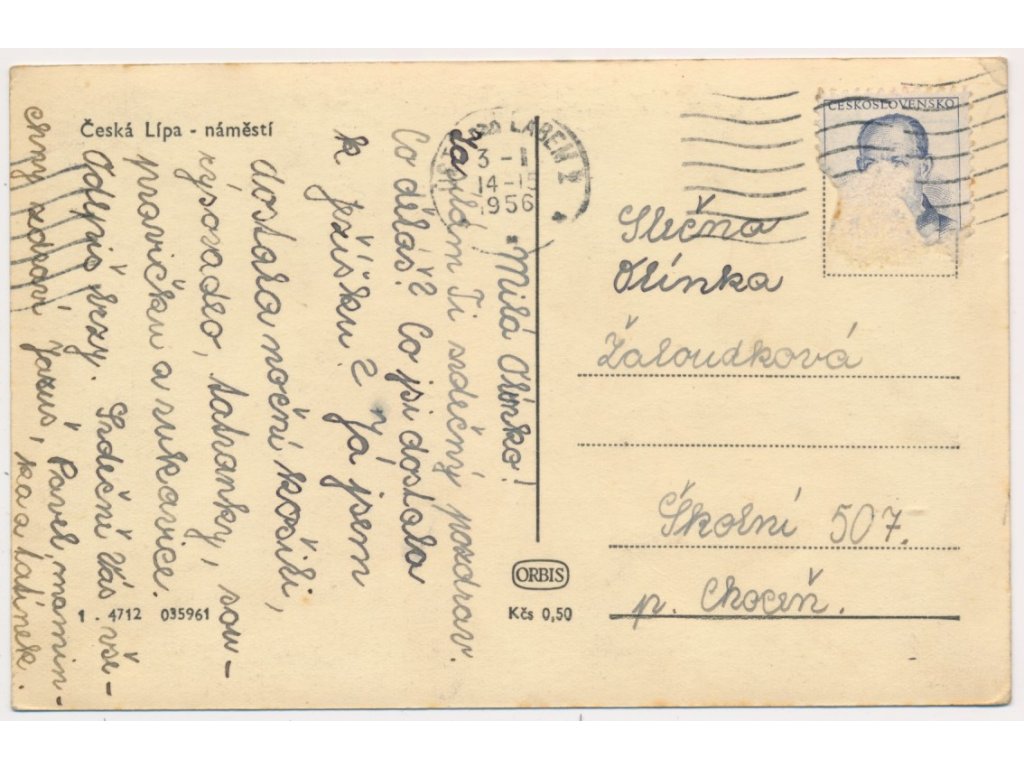 Česká Lípa - náměstí
ČESKOSLOVENSKO
LABEM 2
3 - I
14-15
1956
Milá Olinko!
Zasílám Ti srdečný pozdrav.
Co děláš? Co jsi dostala
k Ježíšku? Já jsem
dostala noční košili,
rýsovadlo, tatranky, sou-
pravičku a rukavice.
Odepiš brzy. Srdečně Vás vše-
chny zdraví Pavel, mamin-
ka a tatínek.
Slečna
Olínka
Žaloudková
Školní 507.
p. Choceň.
ORBIS
Kčs 0,50
1 - 4712 035961